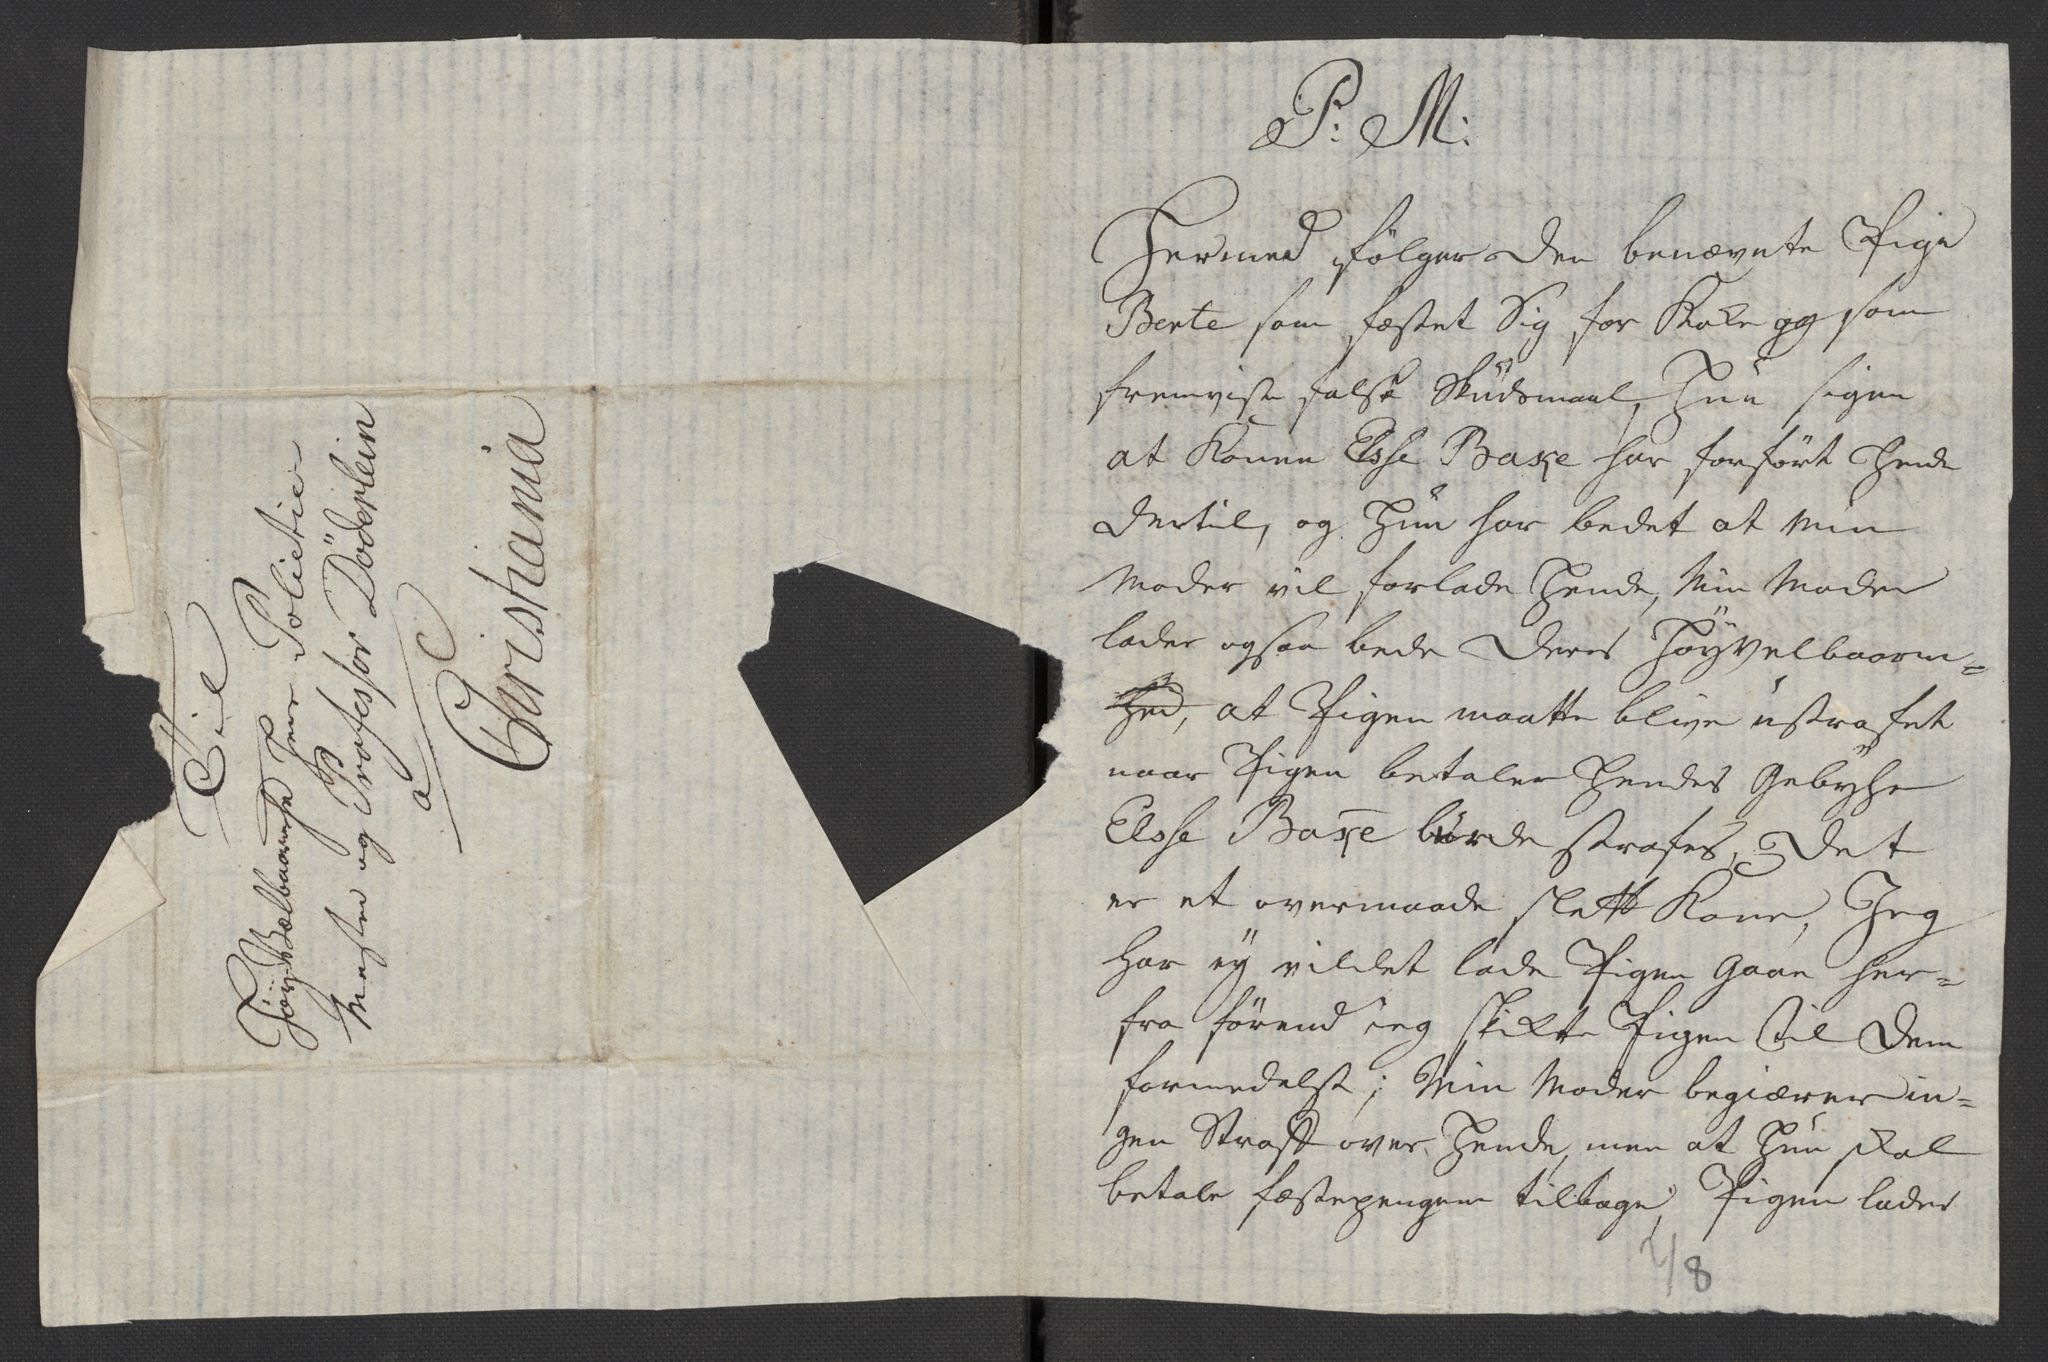 Til
HöyVælbaarnhe Herr Politie
Mester og Professor Döderlein
a
Christiania
P: M:
Hermed følger den benævnte Pige
Berte som fæstet Sig for Kake og som
fremviste falsk Skudsmaal, Hun siger
at Konen Elsse Baxe har forført Hende
dertil, og Hun har bedet at min
Moder vil forlade Hende, Min Moder
lader ogsaa bede Deres Høyvelbaarn=
hed, at Pigen maatte blive ustrafet
naar Pigen betaler Hendes Gebyhr
Elsse Baxe burde strafes, Det
er et overmaade slett Kone, Jeg
har ey vildet lade Pigen Gaae her=
fra førend ieg skikte Pigen til Dem
formedelst; Min Moder begiærer in=
gen Straff over Hende, men at Hun skal
betale fæstepengene tilbage, Pigen lader
2/8